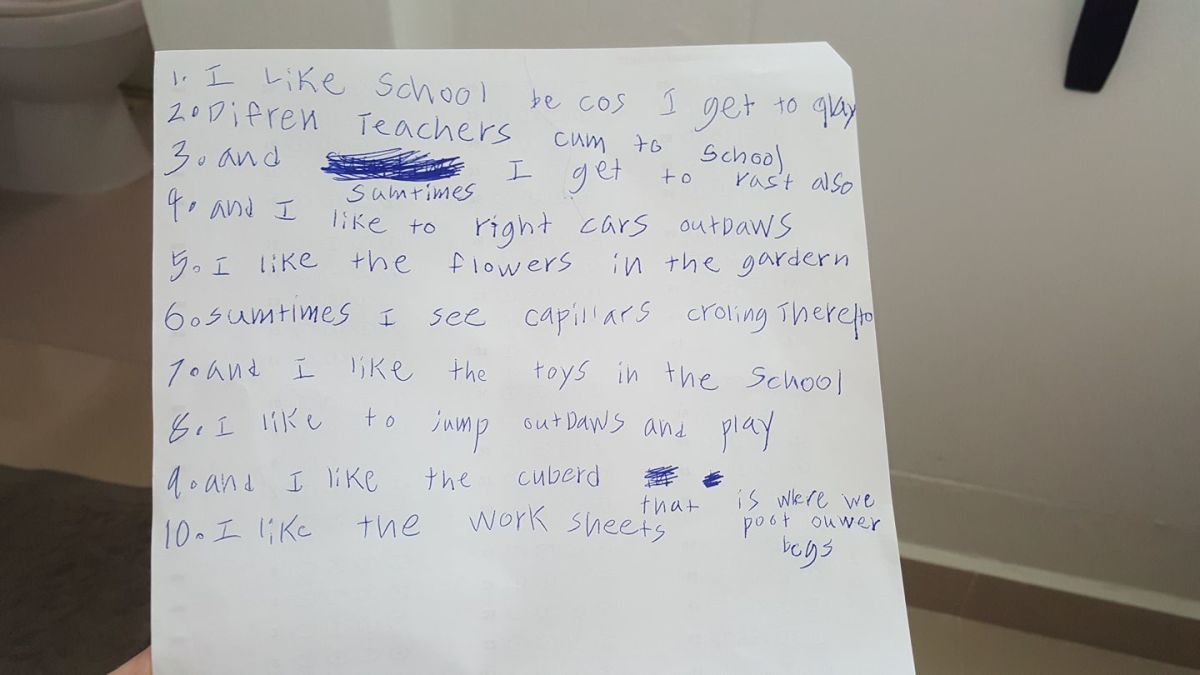 1. I Like School be cos I get to qlay
2. Difren Teachers cum to School
3. and sumtimes I get to rast also
4. and I like to right cars outDaws
5. I like the flowers in the gardern
6. sumtimes I see capillars croling There to
7. and I like the toys in the School
8. I like to jump outDaws and play
9. and I like the cuberd that is were we poot ouwer begs
10. I like the work sheets